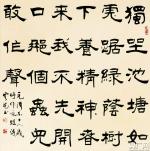 獨坐池塘如
虎踞綠蔭樹
下養精神春
來我不先開
口那個蟲兒
敢作聲